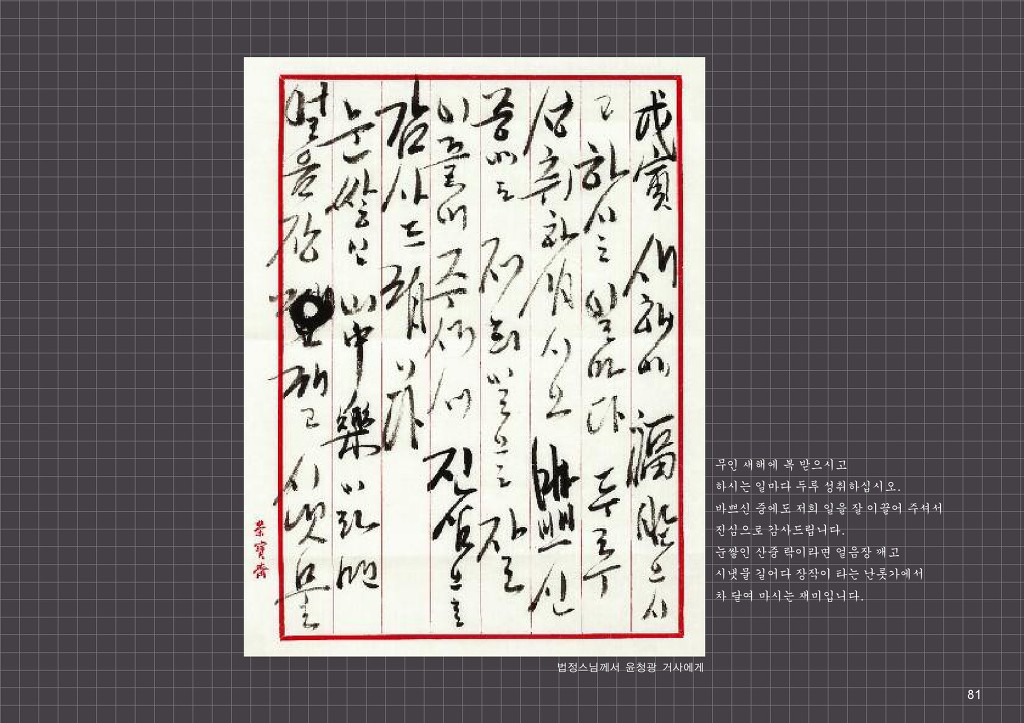 戊寅 새해에 福 받으시
고 하시는 일마다 두루
성취하십시오 바쁘신
중에도 저희 일을 잘
이끌어 주셔서 진심으로
감사드립니다
눈쌓인 山中 樂이라면
얼음장 깨고 시냇물
榮寶齋
무인 새해에 복 받으시고
하시는 일마다 두루 성취하십시오.
바쁘신 중에도 저희 일을 잘 이끌어 주셔서
진심으로 감사드립니다.
눈쌓인 산중 락이라면 얼음장 깨고
시냇물 길어다 장작이 타는 난롯가에서
차 달여 마시는 재미입니다.
법정스님께서 윤청광 거사에게
81